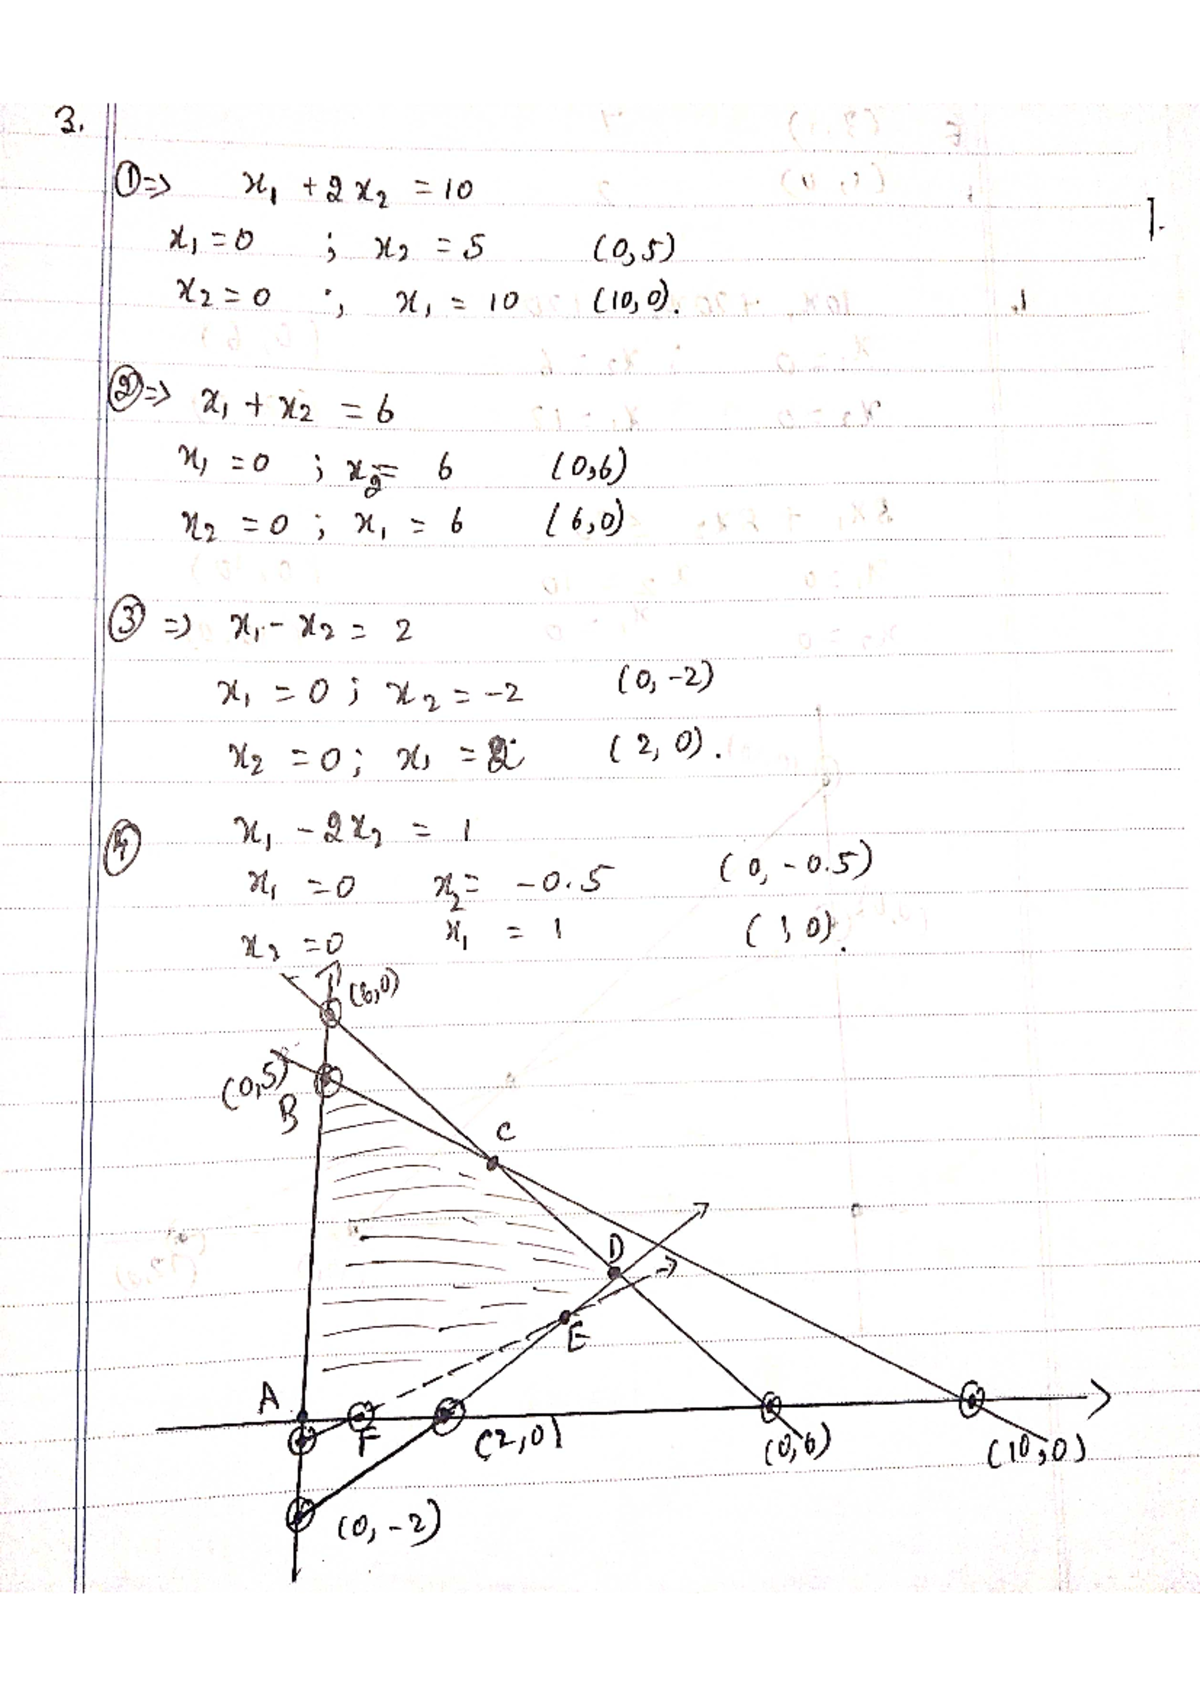 3.
① => x₁ + 2x₂ = 10
x₁ = 0 ; x₂ = 5 (0,5)
x₂ = 0 ; x₁ = 10 (10,0).
② => x₁ + x₂ = 6
x₁ = 0 ; x₂ = 6 (0,6)
x₂ = 0 ; x₁ = 6 (6,0)
③ => x₁ - x₂ = 2
x₁ = 0 ; x₂ = -2 (0,-2)
x₂ = 0 ; x₁ = 2 (2, 0).
④ x₁ - 2x₂ = 1
x₁ = 0 x₂ = -0.5 (0, -0.5)
x₂ = 0 x₁ = 1 (1,0).
(6,0)
(0,5)
B
C
D
E
A
F
(2,0)
(0,6)
(10,0)
(0,-2)